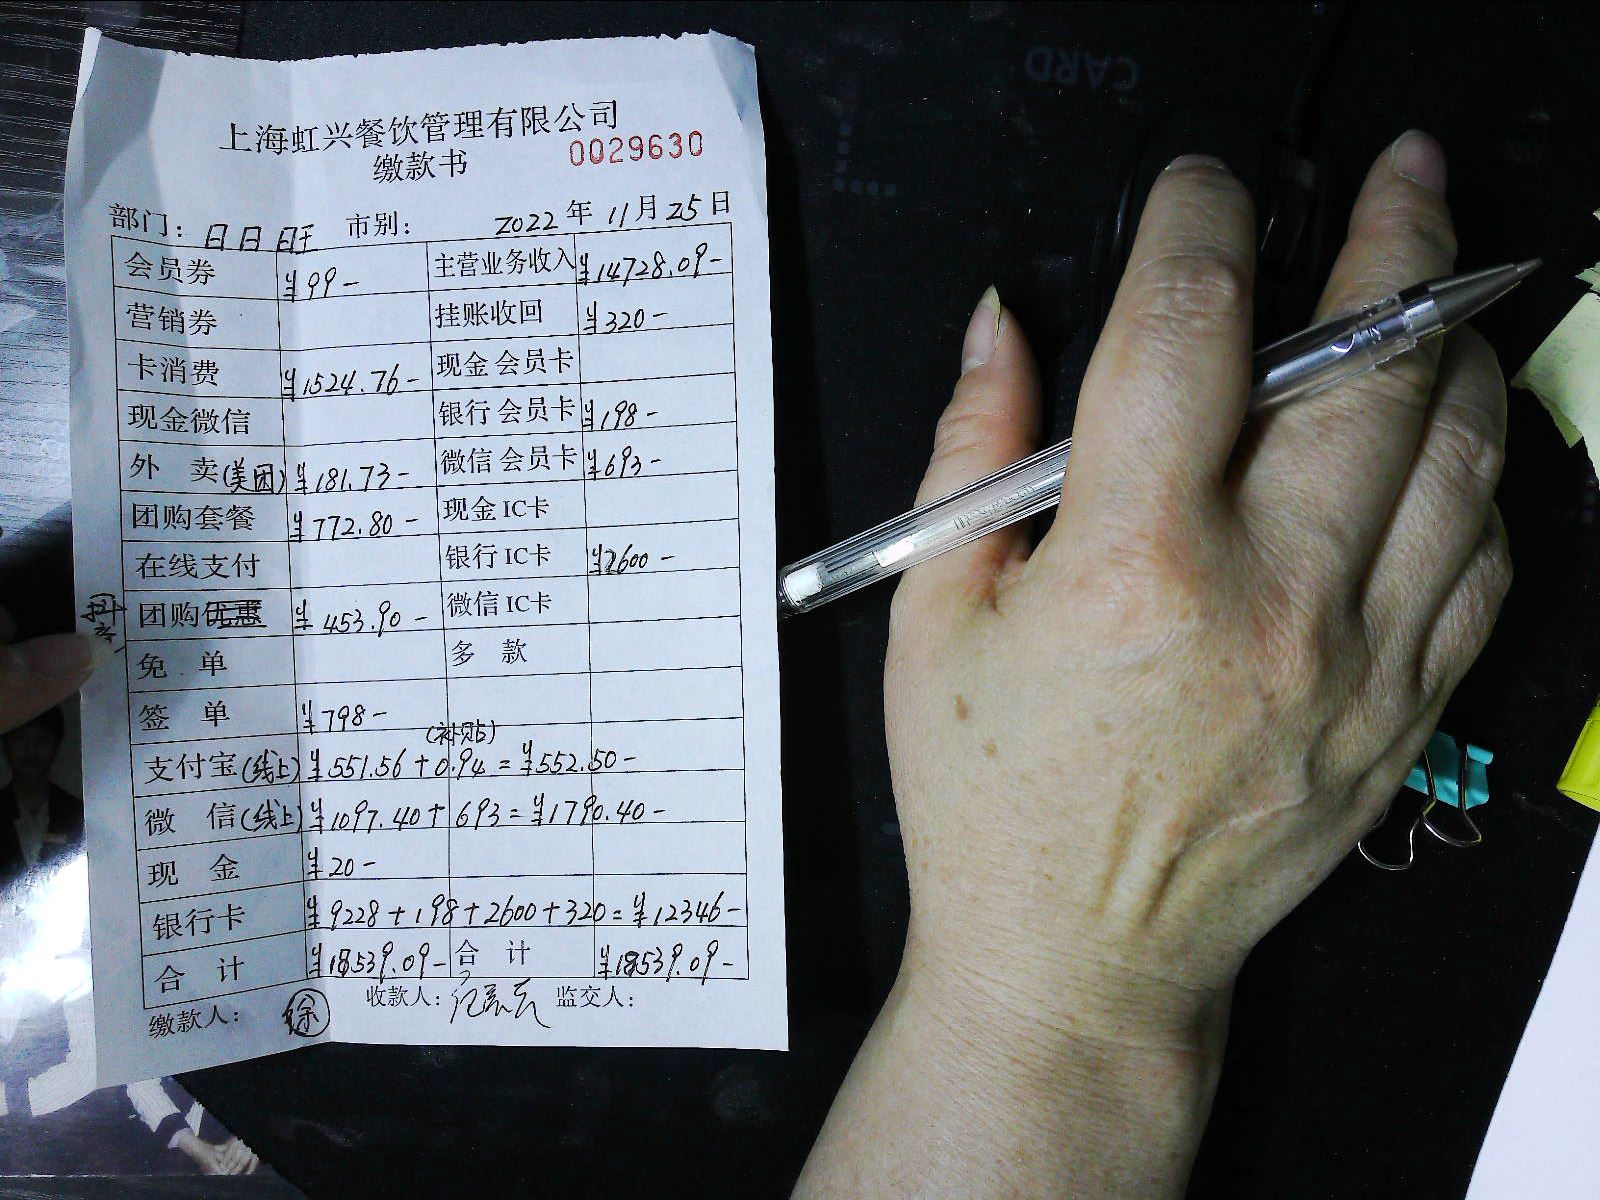 上海虹兴餐饮管理有限公司
缴款书 0029630
部门：日日旺 市别： 2022年11月25日
会员券 ¥99- 主营业务收入 ¥14728.09-
营销券 挂账收回 ¥320-
卡消费 ¥1524.76- 现金会员卡
现金微信 银行会员卡 ¥198-
外 卖(美团) ¥181.73- 微信会员卡 ¥693-
团购套餐 ¥772.80- 现金IC卡
在线支付 银行IC卡 ¥2600-
团购优惠 ¥453.90- 微信IC卡
免 单 多 款
签 单 ¥798-
(补贴)
支付宝(线上) ¥551.56+0.94=¥552.50-
微 信(线上) ¥1097.40+693=¥1790.40-
现 金 ¥20-
银行卡 ¥9228+198+2600+320=¥12346-
合 计 ¥18539.09- 合 计 ¥18539.09-
缴款人： 徐 收款人： 监交人：
CARD